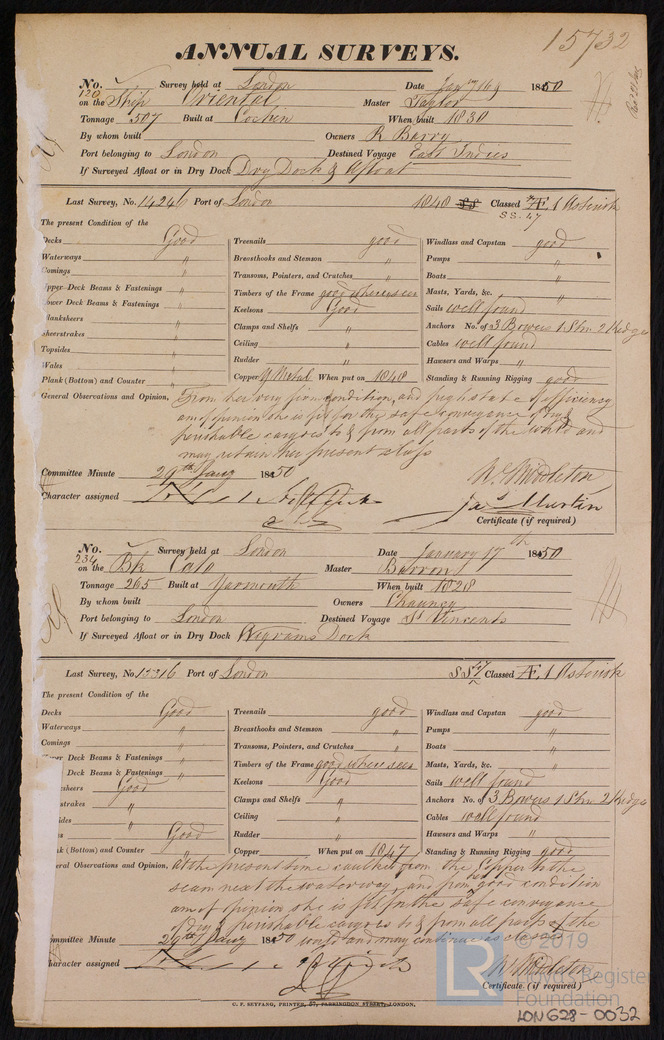 15732
ANNUAL SURVEYS.
No. 120 Survey held at London Date Jany 16th 1850
on the Ship Oriental Master Taylor
Tonnage 507 Built at Cochin When built 1830
By whom built Owners R Barry
Port belonging to London Destined Voyage East Indies
If Surveyed Afloat or in Dry Dock Dry Dock & Afloat
Last Survey, No. 14246 Port of London 1848 SS Classed Æ 1 Asterisk
SS. 47
The present Condition of the
Decks Good Treenails good Windlass and Capstan good
Waterways " Breasthooks and Stemson " Pumps "
Comings " Transoms, Pointers, and Crutches " Boats "
Upper Deck Beams & Fastenings " Timbers of the Frame good where seen Masts, Yards, &c. "
Lower Deck Beams & Fastenings " Keelsons Good Sails well found
Planksheers " Clamps and Shelfs " Anchors No. of 3 Bowers 1 Stm 2 Kedge
Sheerstrakes " Ceiling " Cables well found
Topsides " Rudder " Hawsers and Warps "
Wales "
Plank (Bottom) and Counter " Copper Y Metal When put on 1848 Standing & Running Rigging good
General Observations and Opinion, From her very firm condition, and high state of efficiency
am of opinion she is fit for the safe conveyance of dry &
perishable cargoes to & from all parts of the world and
may retain her present class
Committee Minute 29th Jany 1850 W. Middleton
Character assigned Jas Martin
Certificate (if required)
No. 234 Survey held at London Date January 17th 1850
on the Bk Cato Master Barron
Tonnage 265 Built at Yarmouth When built 1828
By whom built Owners Chauncy
Port belonging to London Destined Voyage St Vincents
If Surveyed Afloat or in Dry Dock Wigrams Dock
Last Survey, No. 15316 Port of London SS 47 Classed Æ 1 Asterisk
The present Condition of the
Decks Good Treenails good Windlass and Capstan good
Waterways " Breasthooks and Stemson " Pumps "
Comings " Transoms, Pointers, and Crutches " Boats "
Deck Beams & Fastenings " Timbers of the Frame good where seen Masts, Yards, &c. "
Deck Beams & Fastenings " Keelsons Good Sails well found
sheers Good Clamps and Shelfs " Anchors No. of 3 Bowers 1 Stm 2 Kedge
strakes " Ceiling " Cables well found
sides " Rudder " Hawsers and Warps "
k (Bottom) and Counter Good Copper When put on 1847 Standing & Running Rigging good
eral Observations and Opinion, At the present time caulked from the Copper to the
seam next the waterway, and from her good condition
am of opinion she is fit for the safe conveyance
of dry & perishable cargoes to & from all parts of the
world and may continue as classed
mmittee Minute 29th Jany 1850
haracter assigned W. Middleton
Certificate (if required)
C. F. SEYFANG, PRINTER, 57, FARRINGDON STREET, LONDON.
© 2019
LR
Lloyd's Register
Foundation
LON628-0032